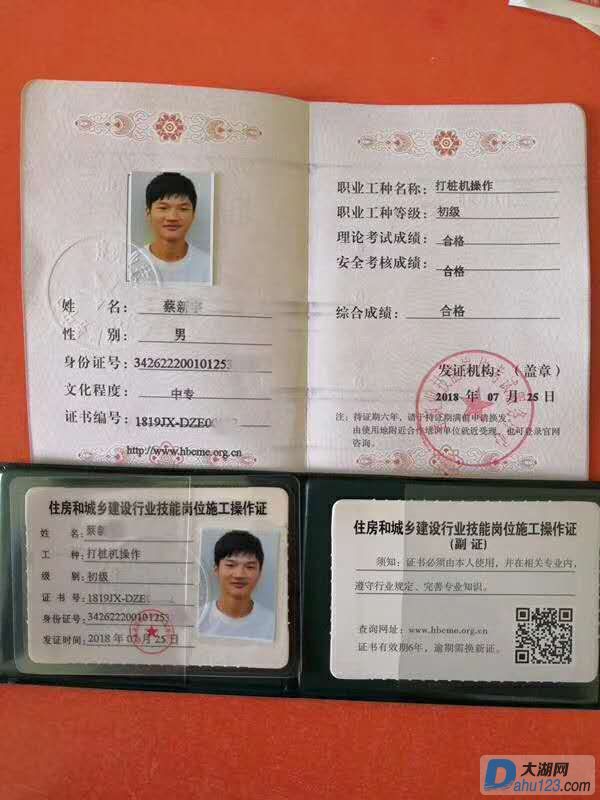 姓 名：蔡新
性 别：男
身份证号：34262220010125
文化程度：中专
证书编号：1819JX-DZE0
http://www.hbcme.org.cn
职业工种名称：打桩机操作
职业工种等级：初级
理论考试成绩：合格
安全考核成绩：合格
综合成绩：合格
发证机构：（盖章）
2018 年 07 月 25 日
注：持证期六年，请于持证期满前申请换发。
由使用地附近合作培训单位就近受理，也可登录官网
咨询。
住房和城乡建设行业技能岗位施工操作证
姓 名：蔡新
工 种：打桩机操作
级 别：初级
证 书 号：1819JX-DZE0
身份证号：342622200101253
发证时间：2018 年 07 月 25 日
住房和城乡建设行业技能岗位施工操作证
（副 证）
须知：证书必须由本人使用，并在相关专业内，
遵守行业规定、完善专业知识。
查询网址：www.hbcme.org.cn
证书有效期6年，逾期需换新证。
大湖网
Dahu123.com